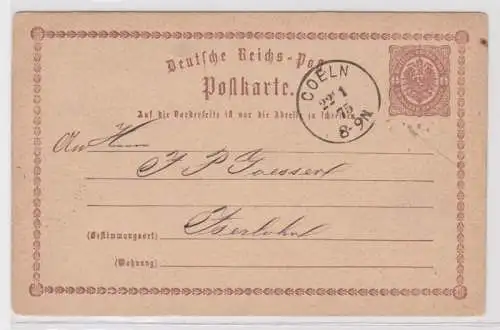 Deutsche Reichs-Post
Postkarte.
COELN
22 1
75
8-9N
Auf die Vorderseite ist nur die Adresse zu schreiben
An Herrn
J P Goessert
Iserlohn
(Bestimmungsort)
(Wohnung)